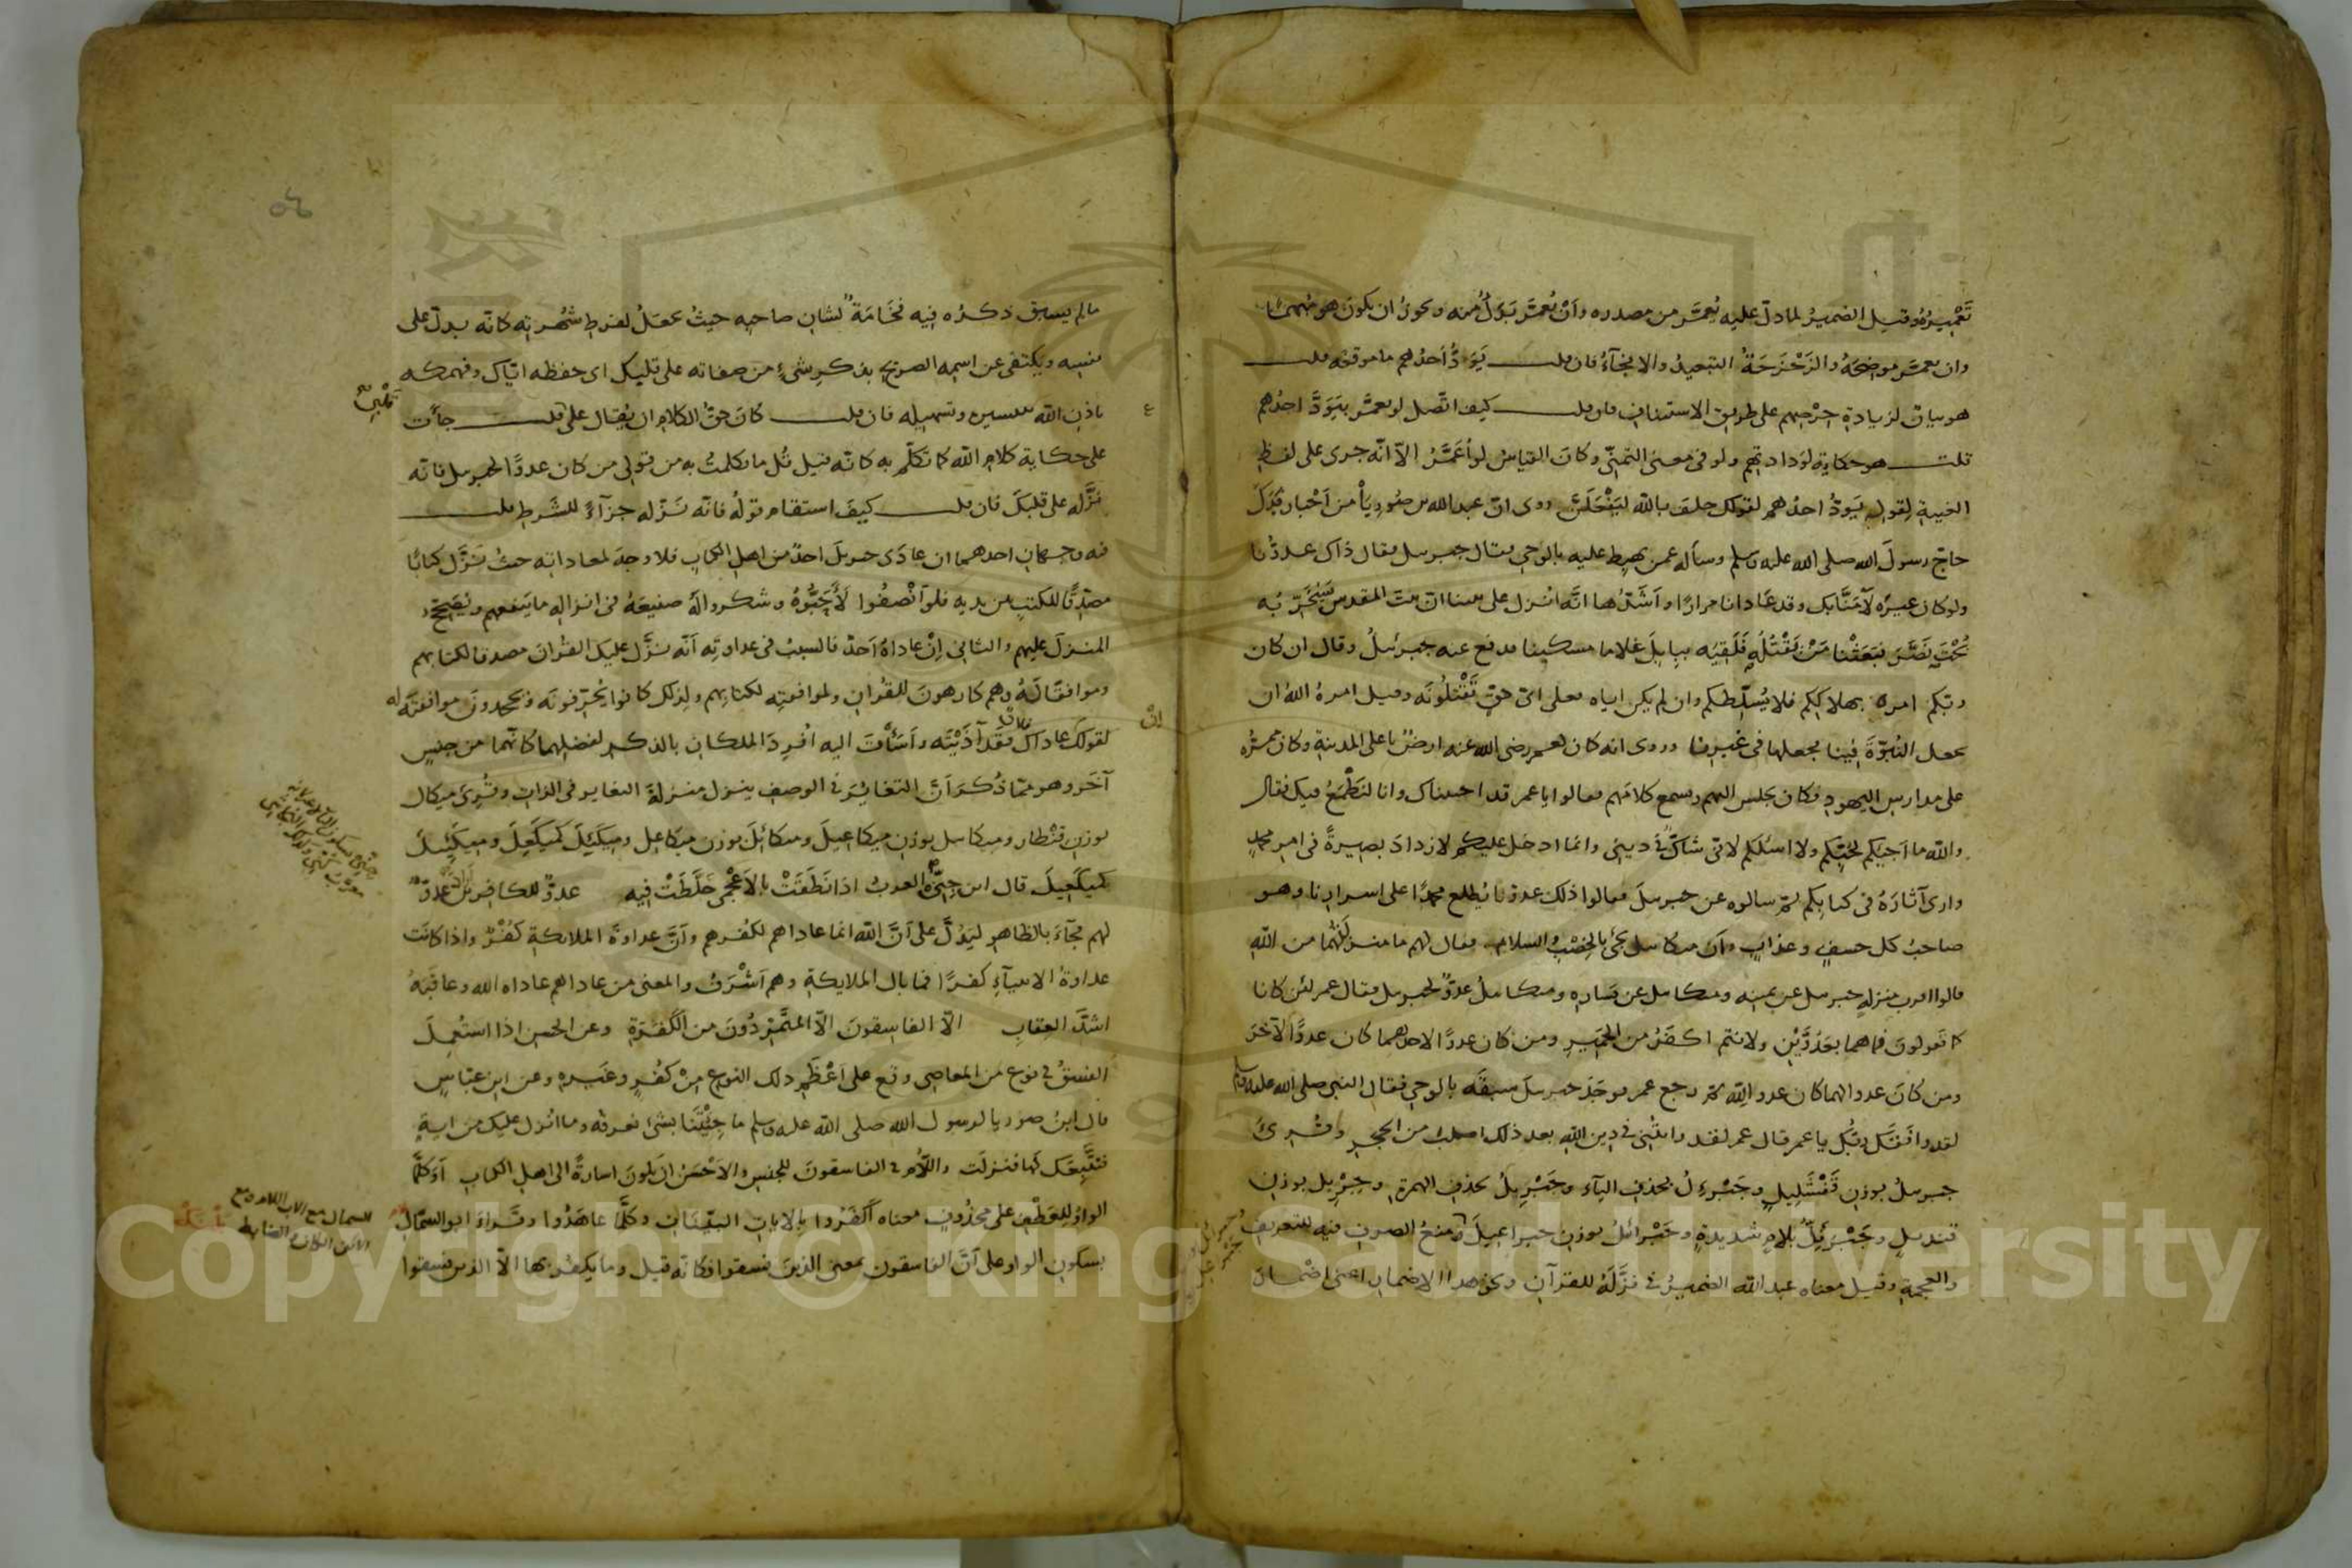 تَعْمِيرُهُ وقيل الضمير لما دلّ عليه يُعمَّر من مصدره وأنْ يُعمَّر بَدَلٌ منه ويجوزُ ان يكون هو مُبهمًا
وان يعمَّر موضحَهُ والزَحْزَحَةُ التبعيدُ والانجَآءُ فان قلت يَوَدُّ أحدُهم ما موقعُه قلت
هو بيانٌ لزيادةِ حِرْصِهم على طريق الاستيناف فان قلت كيف اتّصل لو يعمَّر بيَوَدّ احدُهم
قلت هو حكاية لوَدادتهم ولو فى معنى التمنّى وكانَ القياسُ لو أُعَمَّرُ الاّ انّه جرى على لفظِ
الغيبةِ لقوله يَودُّ احدُهم لقولك حلف بالله ليَفْعَلَنَّ روى انّ عبد الله بن صُورِيَأ من أحْبارِ فَدَكَ
حاجّ رسولَ الله صلى الله عليه وسلم وسأله عمن يهبِط عليه بالوحى فقال جبريل فقال ذاك عدوّنا
ولو كان غيرُه لآمَنَّا بك وقد عَادانا مرارًا وأشَدُّها انَّه انْزل على نبينا انّ بيت المقدس سَيُخَرِّبُه
بُخْتَ نَصَّرَ فبَعَثْنا مَنْ يَقْتُلُه فَلَقِيَه ببابِلَ غلاما مسكينا فدفع عنه جبرئيلُ وقال ان كان
ربّكم امره بهلاككم فلا يُسَلِّطُكم وان لم يكن اياه فعلى اىّ حقٍّ تَقْتلُونَه وقيل امرهُ اللهُ ان
يجعل النُبوّةَ فينا فجعلها فى غيرِنا وروى انه كان لعمر رضى الله عنه ارضٌ باعلى المدينةِ وكان ممرُّه
على مدارسِ اليهود فكان يجلس اليهم ويسمع كلامَهم فقالوا يا عمر قد احببناك وانا لنَطْمَعُ فيك فقال
والله ما اجيئكم لحُبّكم ولا اسئلكم لانى شاكّ فى دينى وانما ادخل عليكم لازدادَ بصيرةً فى امر محمدٍ
وارى آثارَهُ فى كتابكم ثم سالوه عن جبريلَ فقالوا ذلك عدوّنا يُطلع محمدًا على اسرارِنا وهو
صاحبُ كل خسفٍ وعذابٍ وأن ميكائيل يجئ بالخِصْبِ والسلام فقال لهم ما منزلتُهُما من اللهِ
قالوا اقرب منزلةٍ جبريل عن يمينِه وميكائيل عن يسارِه وميكائيلُ عدوّ لجبريل فقال عمر لئن كانا
كما تقولونَ فما هما بعدُوَّيْنِ ولانتم اكفَرُ من الحَمِير ومن كان عدوًّا لاحدِهما كان عدوًّا للآخَرِ
ومن كانَ عدوا لهما كان عدو اللهِ ثم رجع عمر فوجَدَ جبريلَ سبقَه بالوحى فقال النبى صلى الله عليه وسلم
لقد وافقكَ ربُّكَ يا عمر قال عمر لقد راتُنى فى دينِ اللهِ بعد ذلك اصلبَ من الحجرِ وقُرِئَ
جبريلُ بوزنِ قَفْشَلِيلٍ وجَبْرَئِلُ بحذفِ اليآءِ وجَبْرِيلُ بحذف الهمزةِ وجِبْرِيل بوزنِ
قنديلٍ وجَبْرَئِلّ بلامٍ شديدةٍ وجَبْرائلُ بوزنِ جبراعيلَ ومنعُ الصرفِ فيه للتعريفِ
والعجمةِ وقيل معناه عبد الله الضميرُ فى نزَّلَهُ للقرآنِ ونحو هذا الاضمارِ اعنى اضمارَ
ما لم يسبق ذكرُه فيه فخَامَةٌ لشان صاحبِه حيثُ يجعلُ لفرطِ شُهرتِه كانّه يدلّ على
نفسِه ويكتفى عن اسمِه الصريحِ بذكرِ شىءٍ من صفاته على قلبك اى حفظه ايّاك وفهمكه
باذن الله بتيسيره وتسهيله فان قلت كانَ حقُّ الكلامِ ان يُقال على قلبى قلت جآءت
على حكاية كلامِ الله كما تكلّم به كانّه قيل قُل ما تكلمتُ به من قولى من كان عدوًّا لجبريل فانّه
نزَّله على قلبكَ فان قلت كيفَ استقامَ قولُه فانّه نَزّله جزآءً للشّرطِ قلت
فيه وجهانِ احدهما ان عادَى جبريلَ احدٌ من اهلِ الكتابِ فلا وجهَ لمعاداتِه حيثُ نَزَّل كتابًا
مصدِّقًا للكتبِ بين يديه فلو اَنْصفُوا لأحبُّوهُ وشكروا لَهُ صنيعَهُ فى انزالِه ما ينفعهم ويُصَحّح
المنزلَ عليهم والثانى اِنْ عاداهُ اَحدٌ فالسببُ فى عداوتِه اَنّه نزَّل عليكَ القُرانَ مصدقا لكتابهم
وموافقًا لَهُ وهم كارهونَ للقُرانِ ولموافقتِه لكتابِهم ولذلك كانوا يُحَرّفونَه ويَجحدونَ موافقتَه له
لقولك عاداكَ فلان فقد آذَيْتَه وأسَأْتَ اليه اُفْرِدَ الملكان بالذكرِ لفضلِهما كانّهما من جنسٍ
آخَر وهو ممّا ذُكرَ اَنَّ التغايُرَ فى الوصفِ ينزل منزلةَ التغايرِ فى الذاتِ وقُرِئَ ميكال
بوزنِ قنْطار وميكائيل بوزنِ ميكاعيلَ وميكائلَ بوزن ميكاعِل وميكَئِلَ كميكَعِلَ وميكَئِيلَ
كميكَعِيلَ قال ابن جِنّى العربُ اذا نَطَقَتْ بالاَعْجمى خَلَّطَتْ فيه عدوٌّ للكافرين عدوّ
لهم فجآءَ بالظاهرِ ليَدُلَّ على اَنَّ اللهَ انما عاداهم لكُفرِهم واَنَّ عداوةَ الملائكةِ كُفْرٌ واذا كانَت
عداوةُ الانبيآءِ كفرًا فما بال الملايكةِ وهم اَشْرَفُ والمعنى من عاداهم عاداه الله وعاقبَهُ
اشدَّ العِقابِ الاّ الفاسِقونَ الاّ المتَمَرّدُونَ من الكَفَرَةِ وعن الحسنِ اذا استُعمِلَ
الفسقُ فى نوعٍ من المعاصى وقع على اَعْظمِ ذلك النوعِ مِنْ كفْرٍ وغيره وعن ابنِ عبّاسٍ
قال ابنُ صوريا لرسول الله صلى الله عليه وسلم ما جِئْتَنا بشىءٍ نعرفُه وما انزل عليك من ايةٍ
فنَتَّبِعَكَ لَها فنزلَت واللاّم فى الفاسقونَ للجنسِ والاَحْسَنُ ان يكونَ اشارةً الى اهلِ الكتابِ اَوَكُلَّمَا
الواوُ للعَطْفِ على محذُوفٍ معناه اَكَفَرُوا بالاياتِ البيّناتِ وكلَّما عاهَدُوا وقرأ ابو السَّمّال
بسكونِ الواو على اَنّ الفاسقون بمعنى الذينَ فسقوا فكانّه قيل وما يكفُر بها الاّ الذين فسقوا
قلبى
ان
Copyright © King Saud University